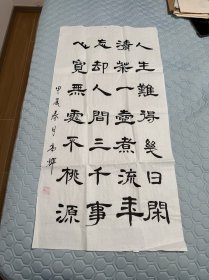 人生難得幾日閑
清茶一壺煮流年
忘却人間三千事
心寬無處不桃源
甲辰春月